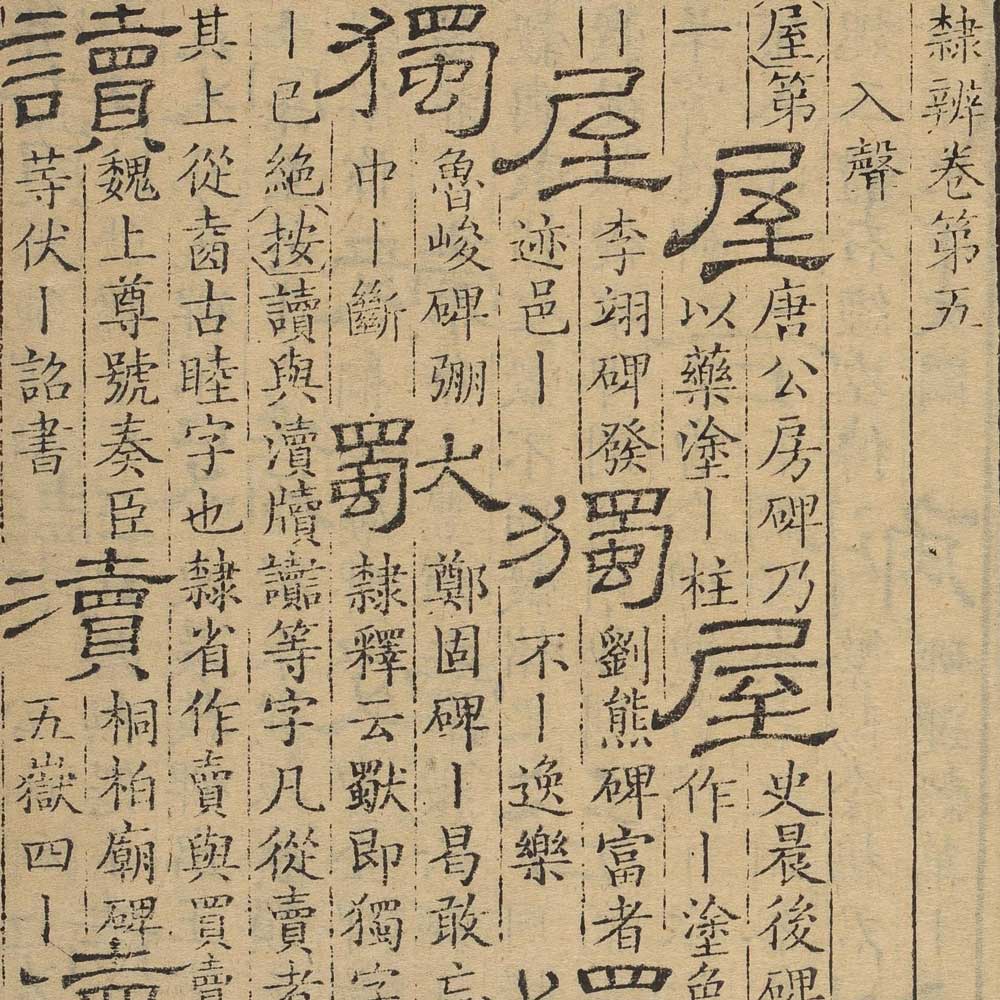 隸辨卷第五
入聲
屋第屋唐公房碑乃屋史晨後碑
一以藥塗丨柱作丨塗色
丨屋李翊碑發獨劉熊碑富者
迹邑丨不丨逸樂
獨魯峻碑弸鄭固碑丨曷敢忘
中丨斷隸釋云即獨字
丨已絶按讀與瀆牘讟等字凡從賣者
其上從古睦字也隸省作賣與買賣
讀魏上尊號奏臣瀆桐柏廟碑
等伏丨詔書五嶽四丨